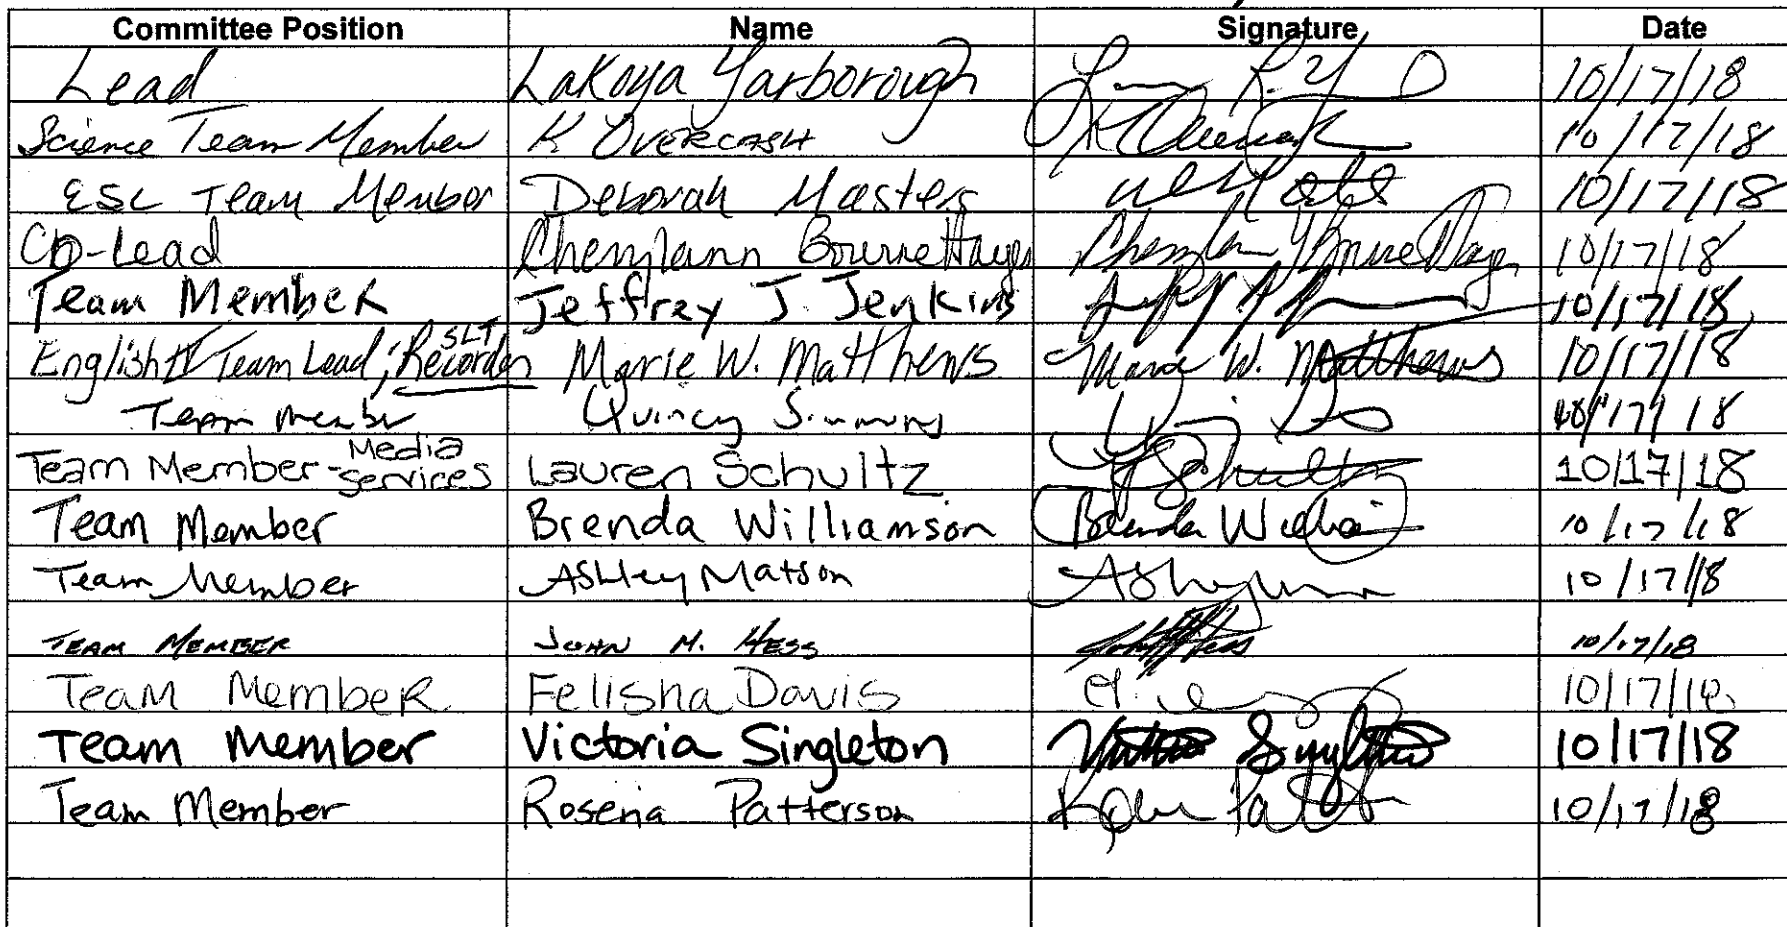 Committee Position Name Signature Date
Lead LaKoya Yarborough 10/17/18
Science Team Member K OVERCASH 10/17/18
ESL Team Member Deborah Masters 10/17/18
Co-Lead Bourne Hayes 10/17/18
Team Member Jeffrey J. Jenkins 10/17/18
English IV Team Lead; SLT Recorder Marie W. Matthews Marie W. Matthews 10/17/18
Team Member Quincy Simmons 10/17/18
Team Member - Media Services Lauren Schultz Schultz 10/17/18
Team Member Brenda Williamson Brenda 10/17/18
Team Member Ashley Matson 10/17/18
TEAM MEMBER JOHN M. HESS 10/17/18
Team Member Felisha Davis 10/17/18
Team Member Victoria Singleton Singleton 10/17/18
Team Member Rosena Patterson 10/17/18